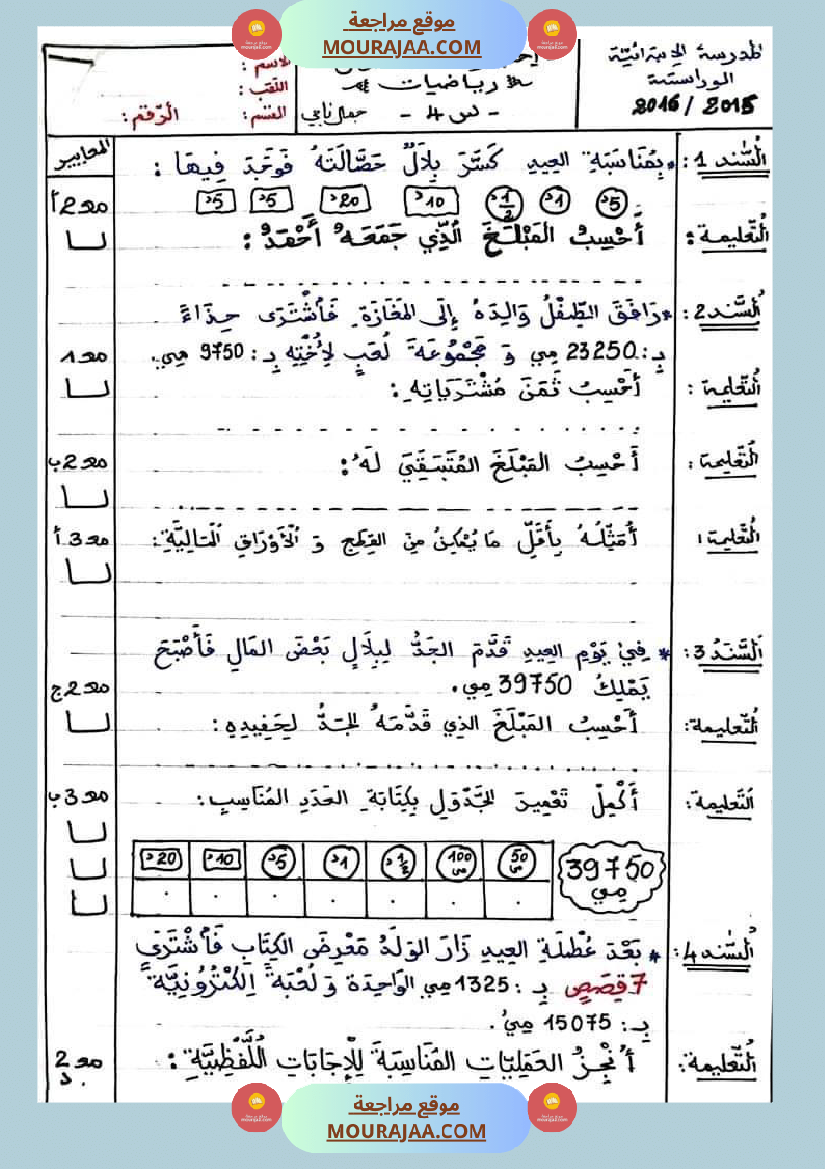 موقع مراجعة
MOURAJAA.COM
المدرسة الإبتدائيّة
الوراسنة
2016 / 2015
رياضيات
- س 4 -
جمال نابي
الاسم :
اللقب :
القسم: الرّقم:
المعايير
السّند 1: * بِمُنَاسَبَةِ العِيدِ كَسَّرَ بِلَالٌ حَصَّالَتَهُ فَوَجَدَ فِيهَا :
5د 1د 1/2د 10د 20د 5د 5د
مع2أ
التّعليمة: أَحْسِبُ المَبْلَغَ الّذِي جَمَعَهُ أَحْمَدُ :
السّند 2: * رَافَقَ الطِّفْلُ وَالِدَهُ إِلَى المَغَازَةِ فَاشْتَرَى حِذَاءً
بِـ: 23250 مي وَ مَجْمُوعَةَ لُعَبٍ لِأُخْتِهِ بِـ: 9750 مي.
مع1
التّعليمة: أَحْسِبُ ثَمَنَ مُشْتَرَيَاتِهِ :
التّعليمة: أَحْسِبُ المَبْلَغَ المُتَبَقِّيَ لَهُ :
مع2ب
التّعليمة: أُمَثِّلُهُ بِأَقَلِّ مَا يُمْكِنُ مِنَ القِطَعِ وَ الأَوْرَاقِ المَالِيَّةِ :
مع3أ
السّند 3: * فِي يَوْمِ العِيدِ قَدَّمَ الجَدُّ لِبِلَالٍ بَعْضَ المَالِ فَأَصْبَحَ
يَمْلِكُ 39750 مي.
مع2ج
التّعليمة: أَحْسِبُ المَبْلَغَ الذِي قَدَّمَهُ الجَدُّ لِحَفِيدِهِ :
التّعليمة: أُكْمِلُ تَعْمِيرَ الجَدْوَلِ بِكِتَابَةِ العَدَدِ المُنَاسِبِ :
مع3ب
39750 مي
50 مي 100 مي 1/2د 1د 5د 10د 20د
السّند 4: * بَعْدَ عُطْلَةِ العِيدِ زَارَ الوَلَدُ مَعْرِضَ الكِتَابِ فَاشْتَرَى
7 قِصَصٍ بِـ : 1325 مي الوَاحِدَة وَ لُعْبَةً إِلِكْتْرُونِيَّةً
بِـ : 15075 مي.
التّعليمة: أُنْجِزُ العَمَلِيَّاتِ المُنَاسِبَةَ لِلْإِجَابَاتِ اللَّفْظِيَّةِ :
مع2د
موقع مراجعة
MOURAJAA.COM